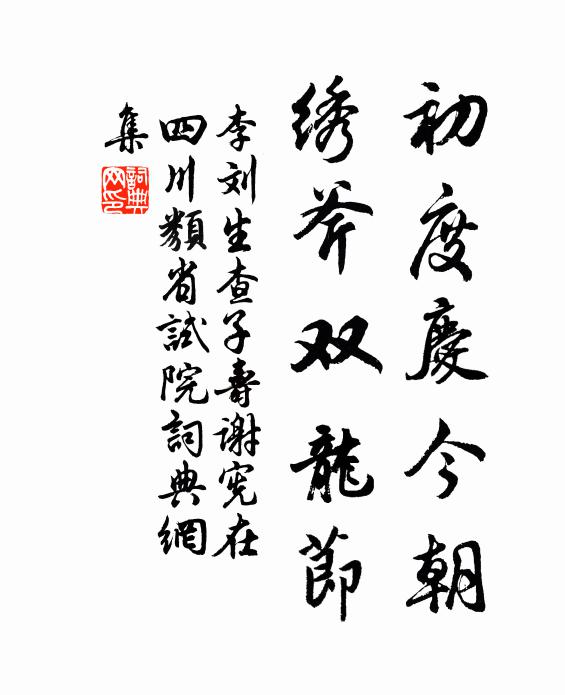 初度慶今朝
绣斧双龍節
李刘生查子壽谢宪在
四川類省試院詞典網
集
詞典
网印